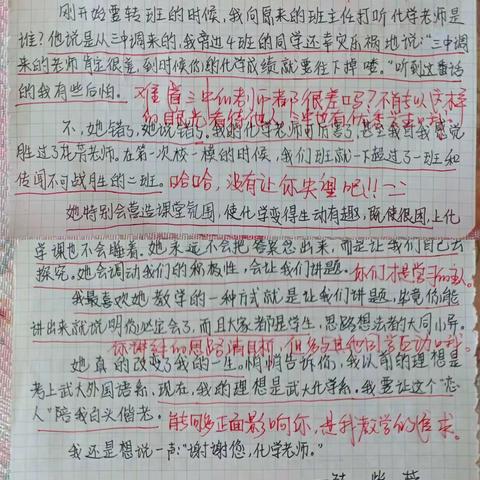 刚开始要转班的时候，我向原来的班主任打听化学老师是
谁？他说是从三中调来的，我旁边4班的同学还幸灾乐祸地说："三中调
来的老师肯定很差，到时候你的化学成绩就要往下掉喽。"听到这番话
的我有些后怕。
难道三中的老师都很差吗？不能以这样
的眼光看待他人
不，她错了，她说错了。我的化学老师可厉害了，甚至我感觉
胜过了花芳老师。在第一次校一模的时候，我们班就一下超过了一班和
传闻不可战胜的二班。
哈哈，没有让你失望吧!!
她特别会营造课堂氛围，使化学变得生动有趣，既使很困，上化
学课也不会睡着。她永远不会把答案念出来，而是让我们自己去
探究。她会调动我们的积极性，会让我们讲题。
你们才是学习的主人。
我最喜欢她教学的一种方式就是让我们讲题，毕竟你能
讲出来就说明你必定会了，而且大家都是学生，思路想法都大同小异。
你讲解的思路清晰，但多与其他同学互动
她真的改变了我的一生。悄悄告诉你，我以前的理想是
考上武大外国语系，现在，我的理想是武大化学系。我要让这个"恋
人"陪我白头偕老。
能够正面影响你，是我教学的追求。
我还是想说一声："谢谢您，化学老师。"